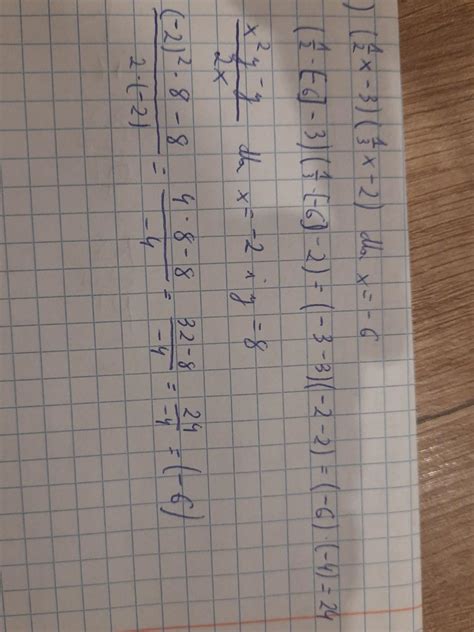 ) (1/2 x - 3)(1/3 x - 2) dla x = -6
(1/2 · (-6) - 3)(1/3 · (-6) - 2) = (-3-3)(-2-2) = (-6) · (-4) = 24
x²y - y / 2x dla x = -2 i y = 8
(-2)² · 8 - 8 / 2 · (-2) = 4 · 8 - 8 / -4 = 32 - 8 / -4 = 24 / -4 = (-6)